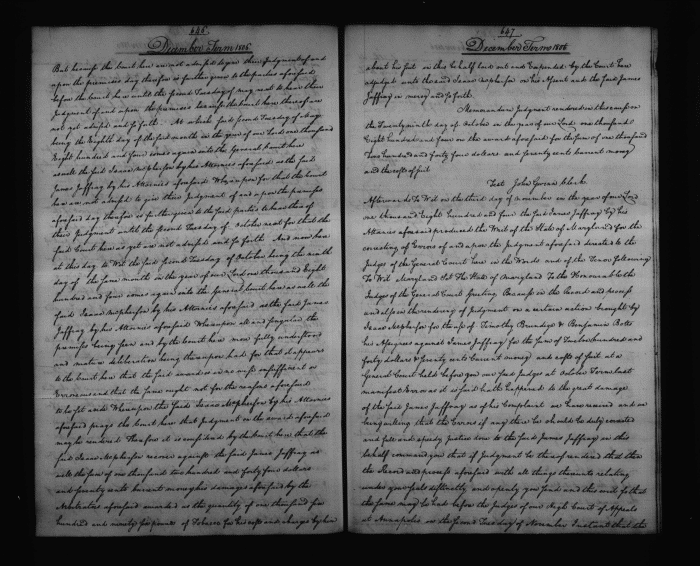 646
December Term 1806
But because the Court here are not advised to give their Judgment of and
upon the premises day therefore is further given to the parties aforesaid
before the Court here until the second Tuesday of May next to hear their
Judgment of and upon the premises because the Court here thereof are
not yet advised and so forth. At which said second Tuesday of May
being the Eighth day of the said month in the year of our Lord one thousand
Eight hundred and four comes again into the General Court here
as well the said Isaac McPherson by his Attornies aforesaid as the said
James Jaffray by his Attornies aforesaid Whereupon for that the Court
here are not advised to give their Judgment of and upon the premises
aforesaid day therefore is further given to the said parties to hear thereof
their Judgment until the second Tuesday of October next for that the
said Court here as yet are not advised and so forth And now here
at this day to Wit the said second Tuesday of October being the ninth
day of the same month in the year of our Lord one thousand Eight
hundred and four comes again into the General Court here as well the
said Isaac McPherson by his Attornies aforesaid as the said James
Jaffray by his Attornies aforesaid Whereupon all and singular the
premises being seen and by the Court here more fully understood
and mature deliberation being thereupon had for that it appears
to the Court here that the said award is in no wise insufficient or
Erroneous and that the same ought not for the reasons aforesaid
to be set aside Whereupon the said Isaac McPherson by his Attornies
aforesaid prays the Court here that Judgment on the award aforesaid
may be rendered Therefore it is considered by the Court here that the
said Isaac McPherson recover against the said James Jaffray as
well the sum of one thousand two hundred and forty four dollars
and seventy cents current money his damages aforesaid by the
Arbitrators aforesaid awarded as the quantity of one thousand five
hundred and ninety six pounds of Tobacco for his costs and charges by him
647
December Term 1806
about his suit in this behalf laid out and Expended by the Court here
adjudged unto the said Isaac McPherson on his Assent and the said James
Jaffray in mercy and so forth.
Memorandum Judgment rendered in this cause on
the Twenty ninth day of October in the year of our Lord one thousand
Eight hundred and four on the award aforesaid for the sum of one thousand
two hundred and forty four dollars and seventy cents current money
and the costs of suit
Test John Gwinn Clerk.
Afterwards To Wit on the third day of November in the year of our Lord
one thousand Eight hundred and four the said James Jaffray by his
Attornies aforesaid produced the Writ of the State of Maryland for the
correcting of Errors of and upon the Judgment aforesaid directed to the
Judges of the General Court here in the Words and of the Tenor following
To Wit Maryland Sct The State of Maryland To the Honourable the
Judges of the General Court Greeting Because in the Record and process
and also in the rendering of Judgment on a certain action brought by
Isaac McPherson for the use of Timothy Brundige &amp; Benjamin Botts
his Assignees against James Jaffray for the sum of Twelve hundred and
forty dollars &amp; seventy cents Current money and costs of suit at a
General Court held before you our said Judges at October Term last
manifest Error as it is said hath happened to the great damage
of the said James Jaffray as of his Complaint we have received and we
being willing that the Errors if any there be should be duly corrected
and full and speedy justice done to the said James Jaffray in this
behalf command you that if Judgment be thereof rendered that then
the Record and process aforesaid with all things thereunto relating
under your seals distinctly and openly you send and this writ so that
the same may be had before the Judges of our High Court of Appeals
at Annapolis on the second Tuesday of November Instant that the